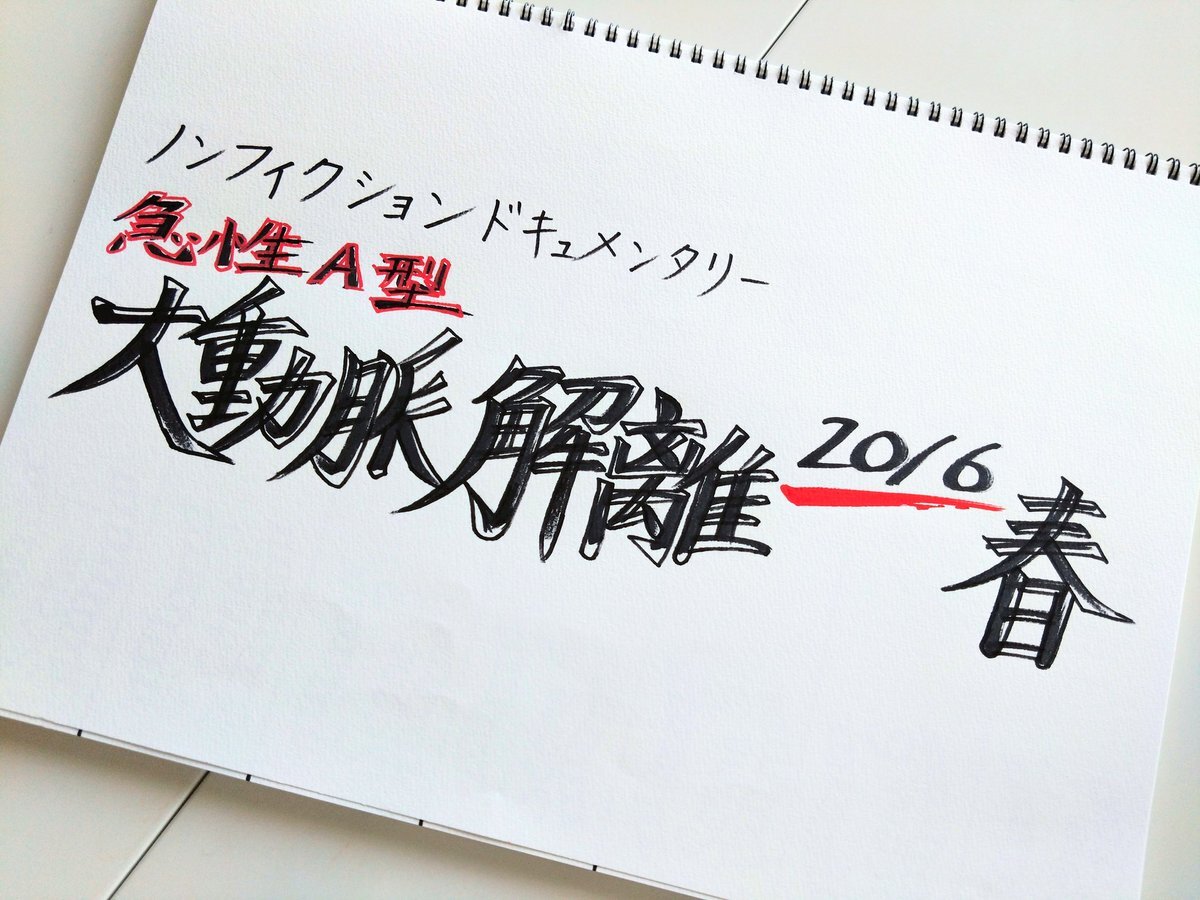 ノンフィクションドキュメンタリー
急性A型
大動脈解離
2016
春